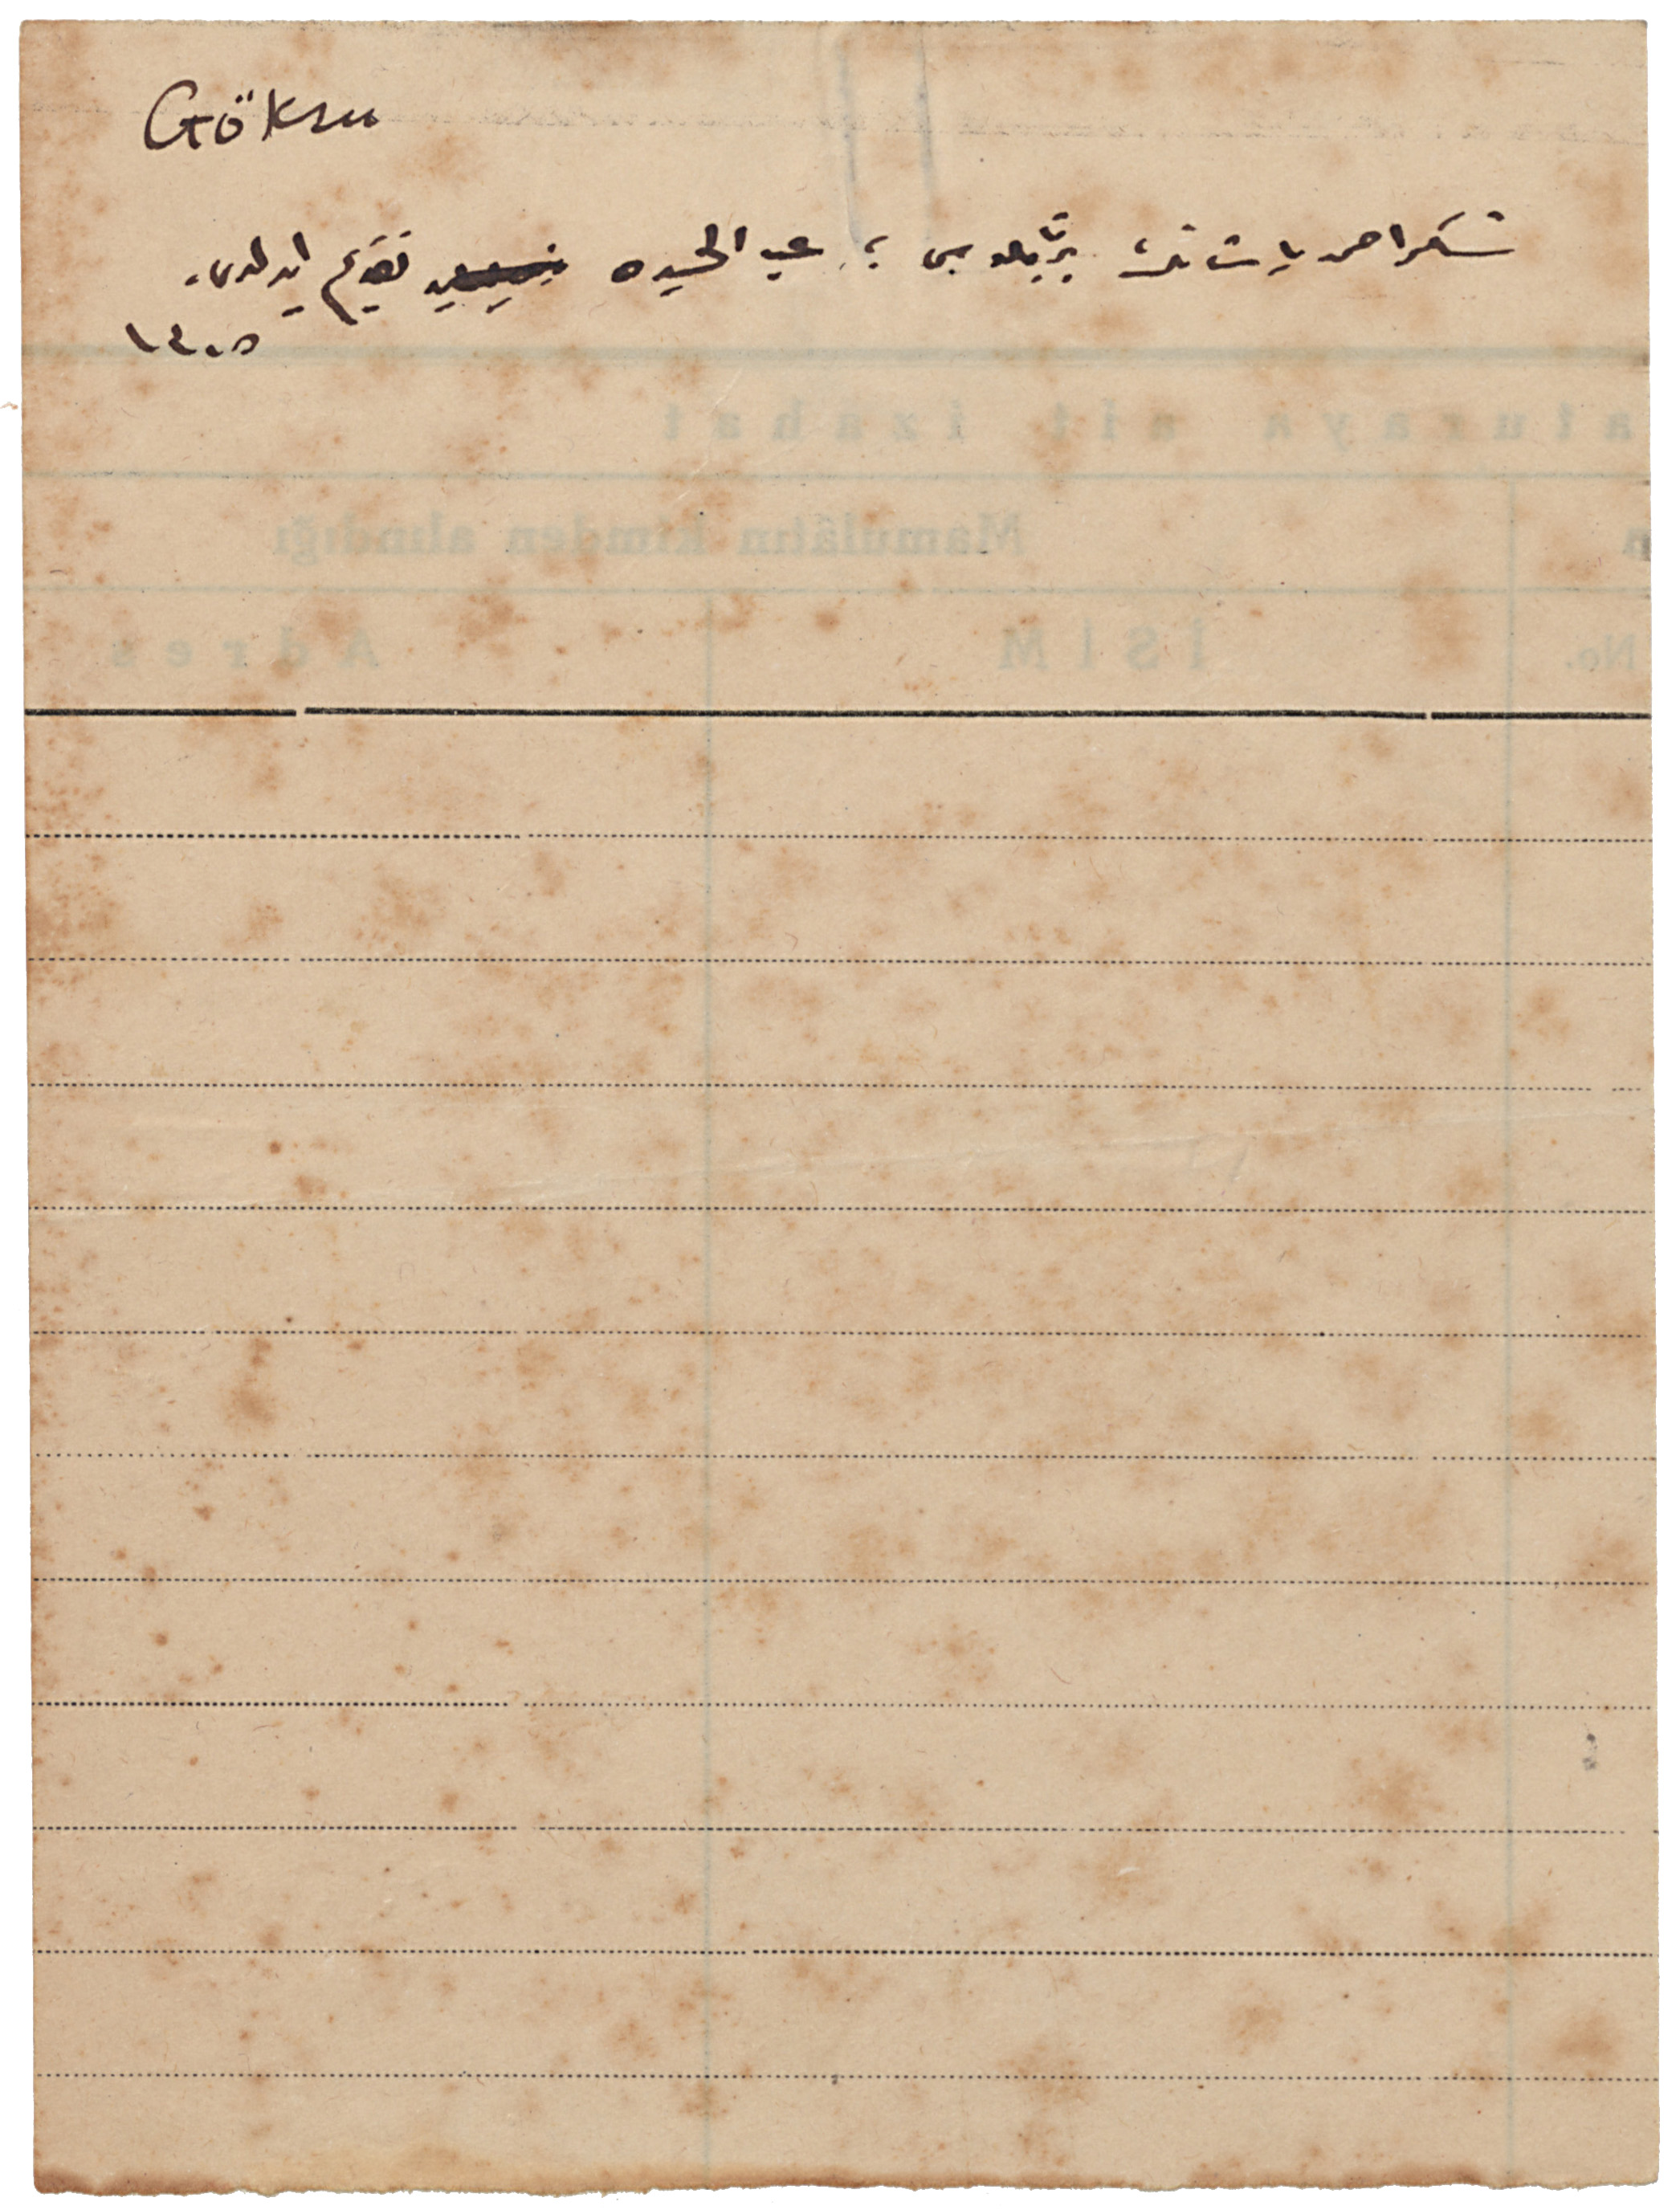 Göksu
شكر احمد پاشانك بر تابلوسى ؛ عبد الحميده تقديم ايدلدى.
١٣٠٥
aturaya ait izahat
Mamulâtın kimden alındığı
No. İSİM Adres